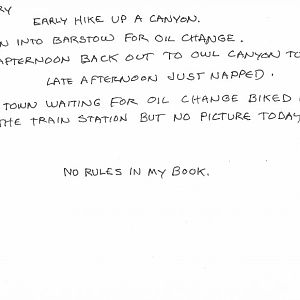 RY
EARLY HIKE UP A CANYON.
N INTO BARSTOW FOR OIL CHANGE.
AFTERNOON BACK OUT TO OWL CANYON TO
LATE AFTERNOON JUST NAPPED.
TOWN WAITING FOR OIL CHANGE BIKED
THE TRAIN STATION BUT NO PICTURE TODAY
NO RULES IN MY BOOK.